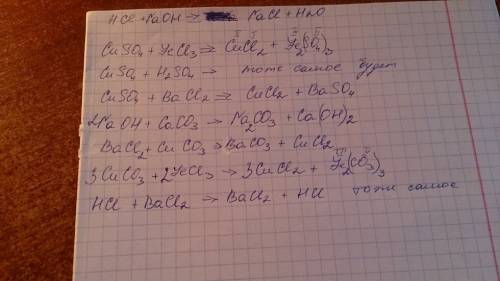 HCl + NaOH → NaCl + H2O
CuSO4 + FeCl3 ⇒ CuCl2 + Fe2(SO4)3
CuSO4 + H2SO4 → тоже самое будет
CuSO4 + BaCl2 ⇒ CuCl2 + BaSO4
2NaOH + CaCO3 → Na2CO3 + Ca(OH)2
BaCl2 + CuCO3 → BaCO3 + CuCl2
3CuCO3 + 2FeCl3 → 3CuCl2 + Fe2(CO3)3
HCl + BaCl2 → BaCl2 + HCl тоже самое